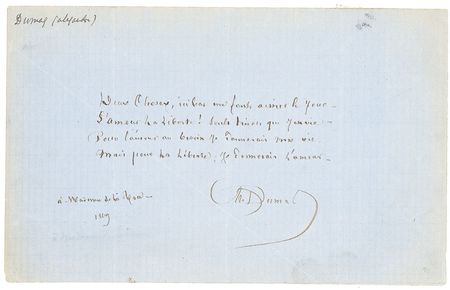 Dumas (alexandre)
Deux Choses, ici bas me font aimer le jour —
L'amour La Liberté! Seuls trésors que j'envie —
Pour l'amour au besoin je donnerais ma vie
Mais pour La Liberté, je donnerais l'amour —
Dumas
à Monsieur de la